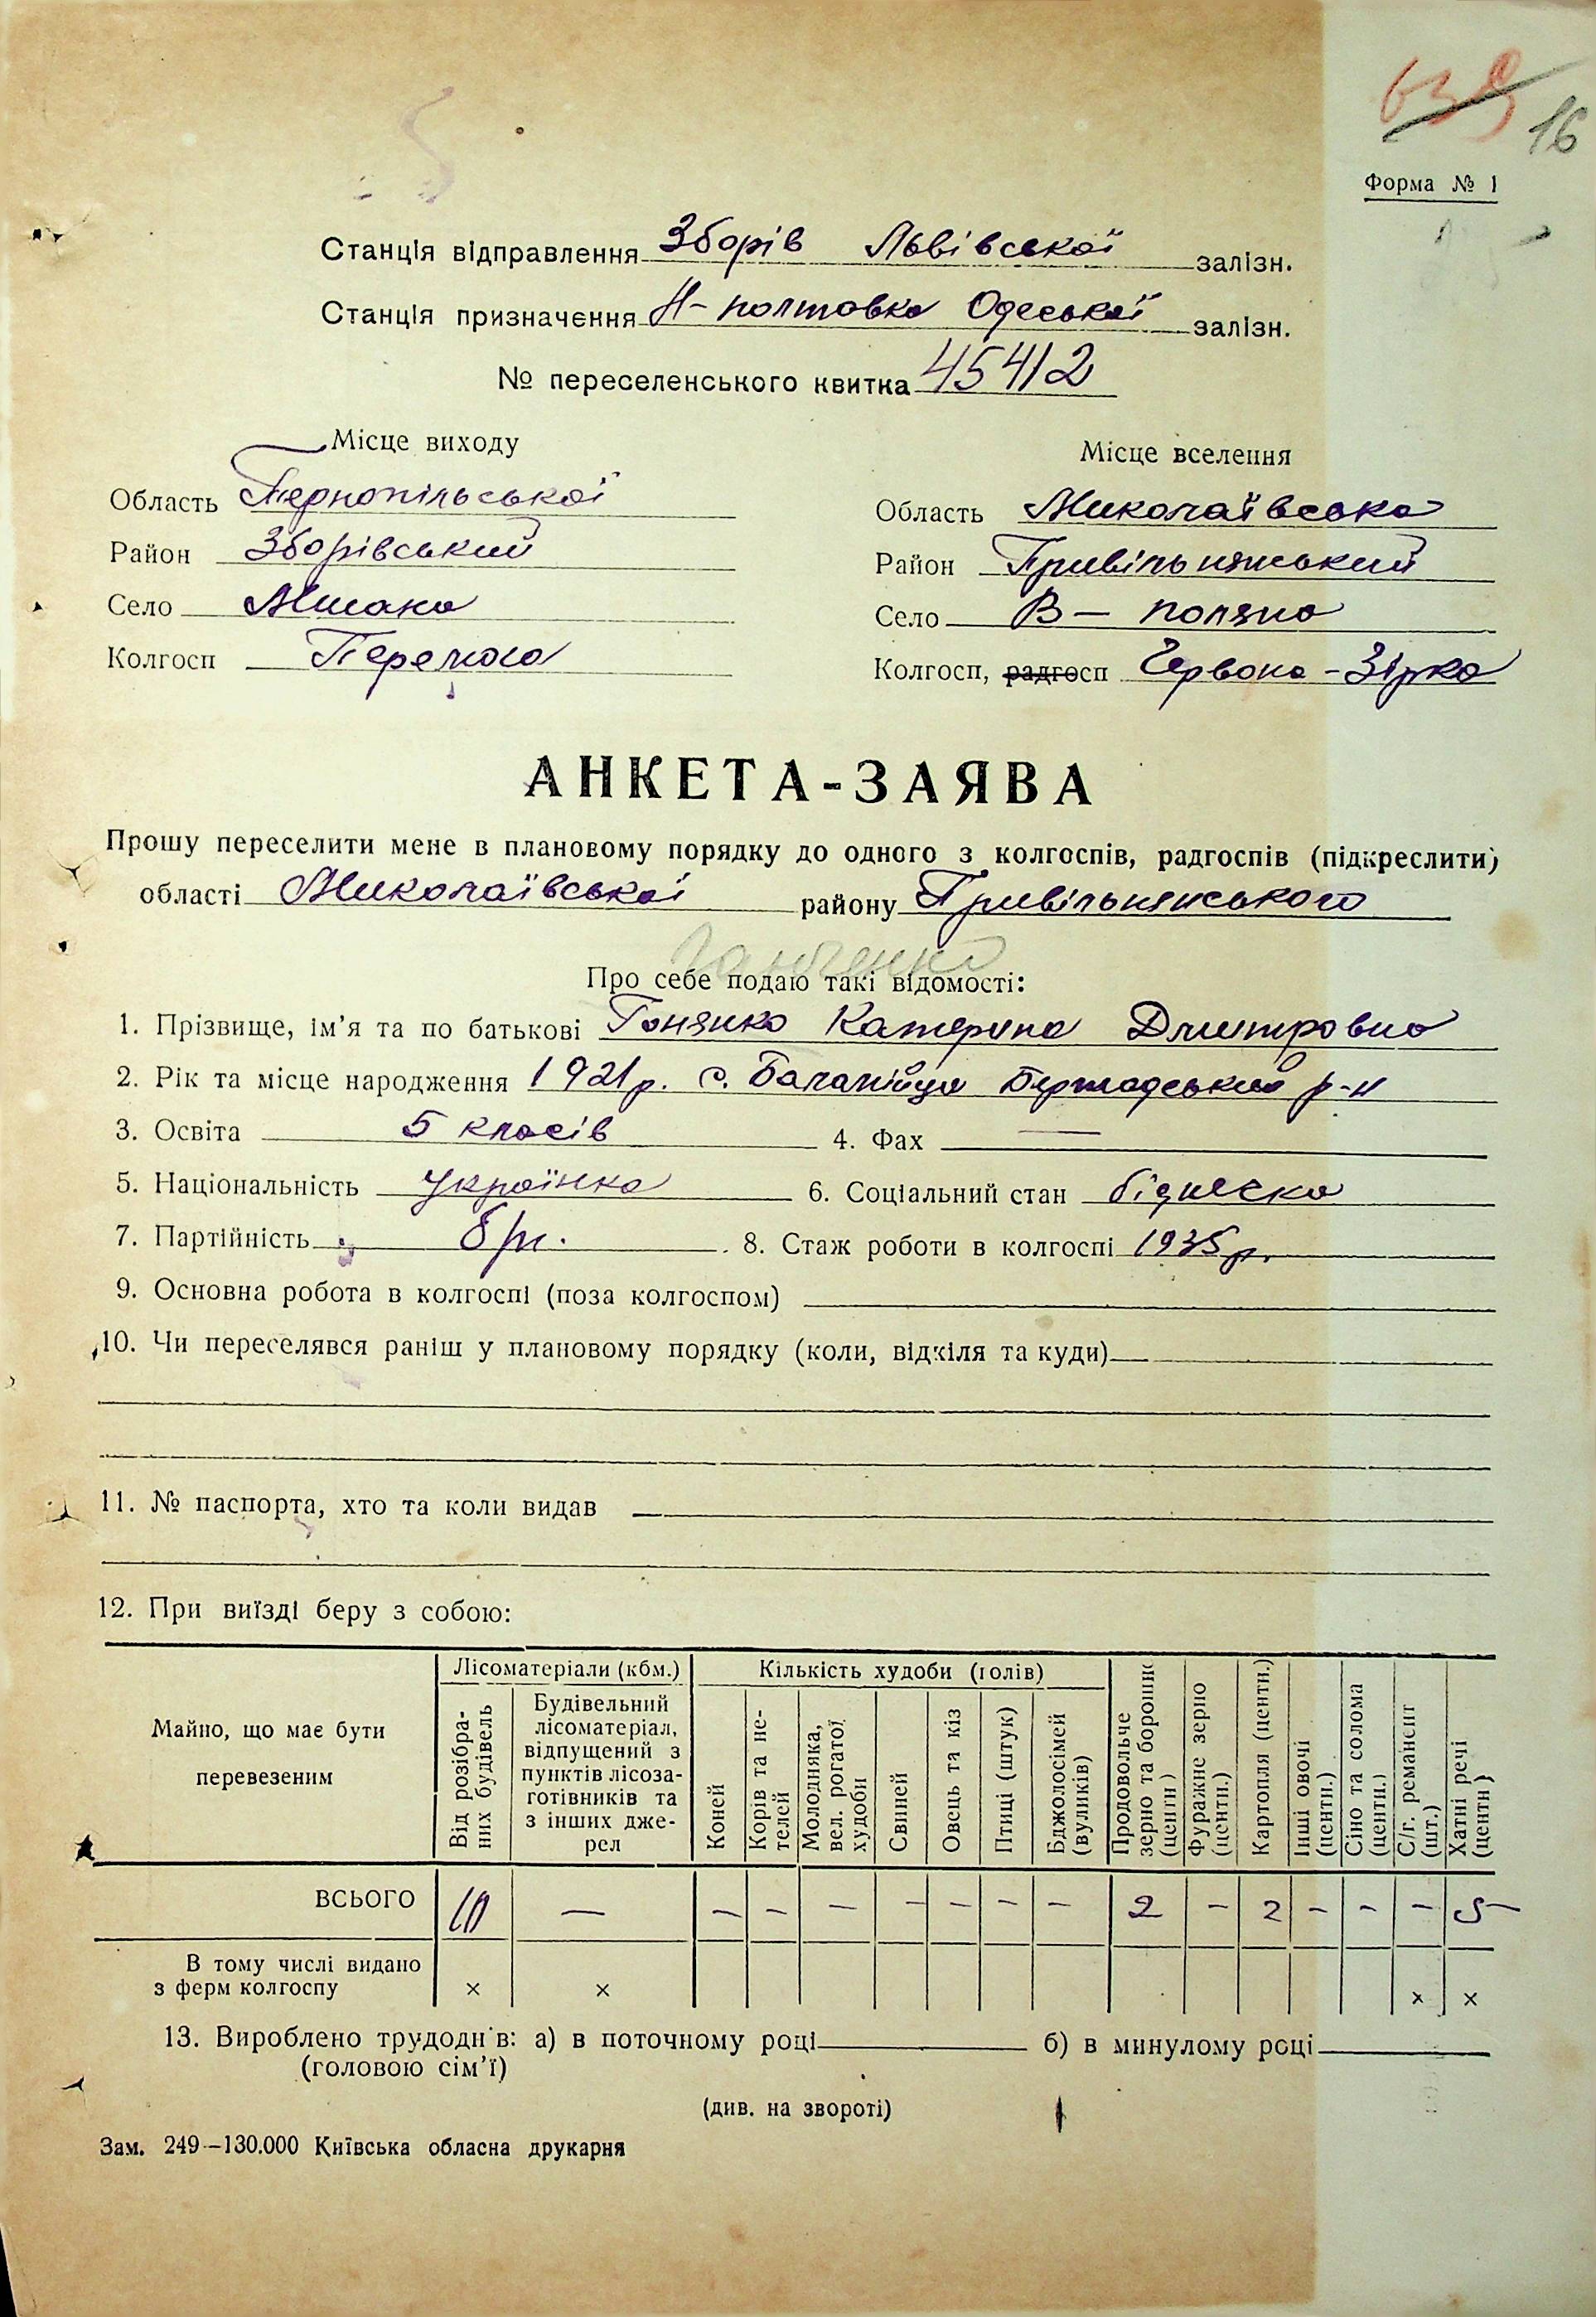 639 16
Форма № 1
Станція відправлення Зборів Львівської залізн.
Станція призначення Н-полтавка Одеської залізн.
№ переселенського квитка 45412
Місце виходу
Область Тернопільської
Район Зборівський
Село Млинака
Колгосп Перемога
Місце вселення
Область Миколаївська
Район Привільнянський
Село В - поляна
Колгосп, радгосп Червона - Зірка
АНКЕТА-ЗАЯВА
Прошу переселити мене в плановому порядку до одного з колгоспів, радгоспів (підкреслити)
області Миколаївської району Привільнянського
Про себе подаю такі відомості:
1. Прізвище, ім'я та по батькові Гонянко Катерина Дмитровна
2. Рік та місце народження 1921р. с. Баланівца Бершадський р-н
3. Освіта 5 класів 4. Фах —
5. Національність українка 6. Соціальний стан біднячка
7. Партійність б/п. 8. Стаж роботи в колгоспі 1935р.
9. Основна робота в колгоспі (поза колгоспом)
10. Чи переселявся раніш у плановому порядку (коли, відкіля та куди)
11. № паспорта, хто та коли видав
12. При виїзді беру з собою:
Майно, що має бути
перевезеним
Лісоматеріали (кбм.)
Від розібра-
них будівель
Будівельний
лісоматеріал,
відпущений з
пунктів лісоза-
готівників та
з інших дже-
рел
Кількість худоби (голів)
Коней
Корів та не-
телей
Молодняка,
вел. рогатої
худоби
Свиней
Овець та кіз
Птиці (штук)
Бджолосімей
(вуликів)
Продовольче
зерно та борошно
(центн)
Фуражне зерно
(центн.)
Картопля (центн.)
Інші овочі
(центн.)
Сіно та солома
(центн.)
С/г. реманент
(шт.)
Хатні речі
(центн)
ВСЬОГО 10 — — — — — — — — 2 — 2 — — — 5
В тому числі видано
з ферм колгоспу × × × ×
13. Вироблено трудоднів: а) в поточному році б) в минулому році
(головою сім'ї)
(див. на звороті)
Зам. 249—130.000 Київська обласна друкарня